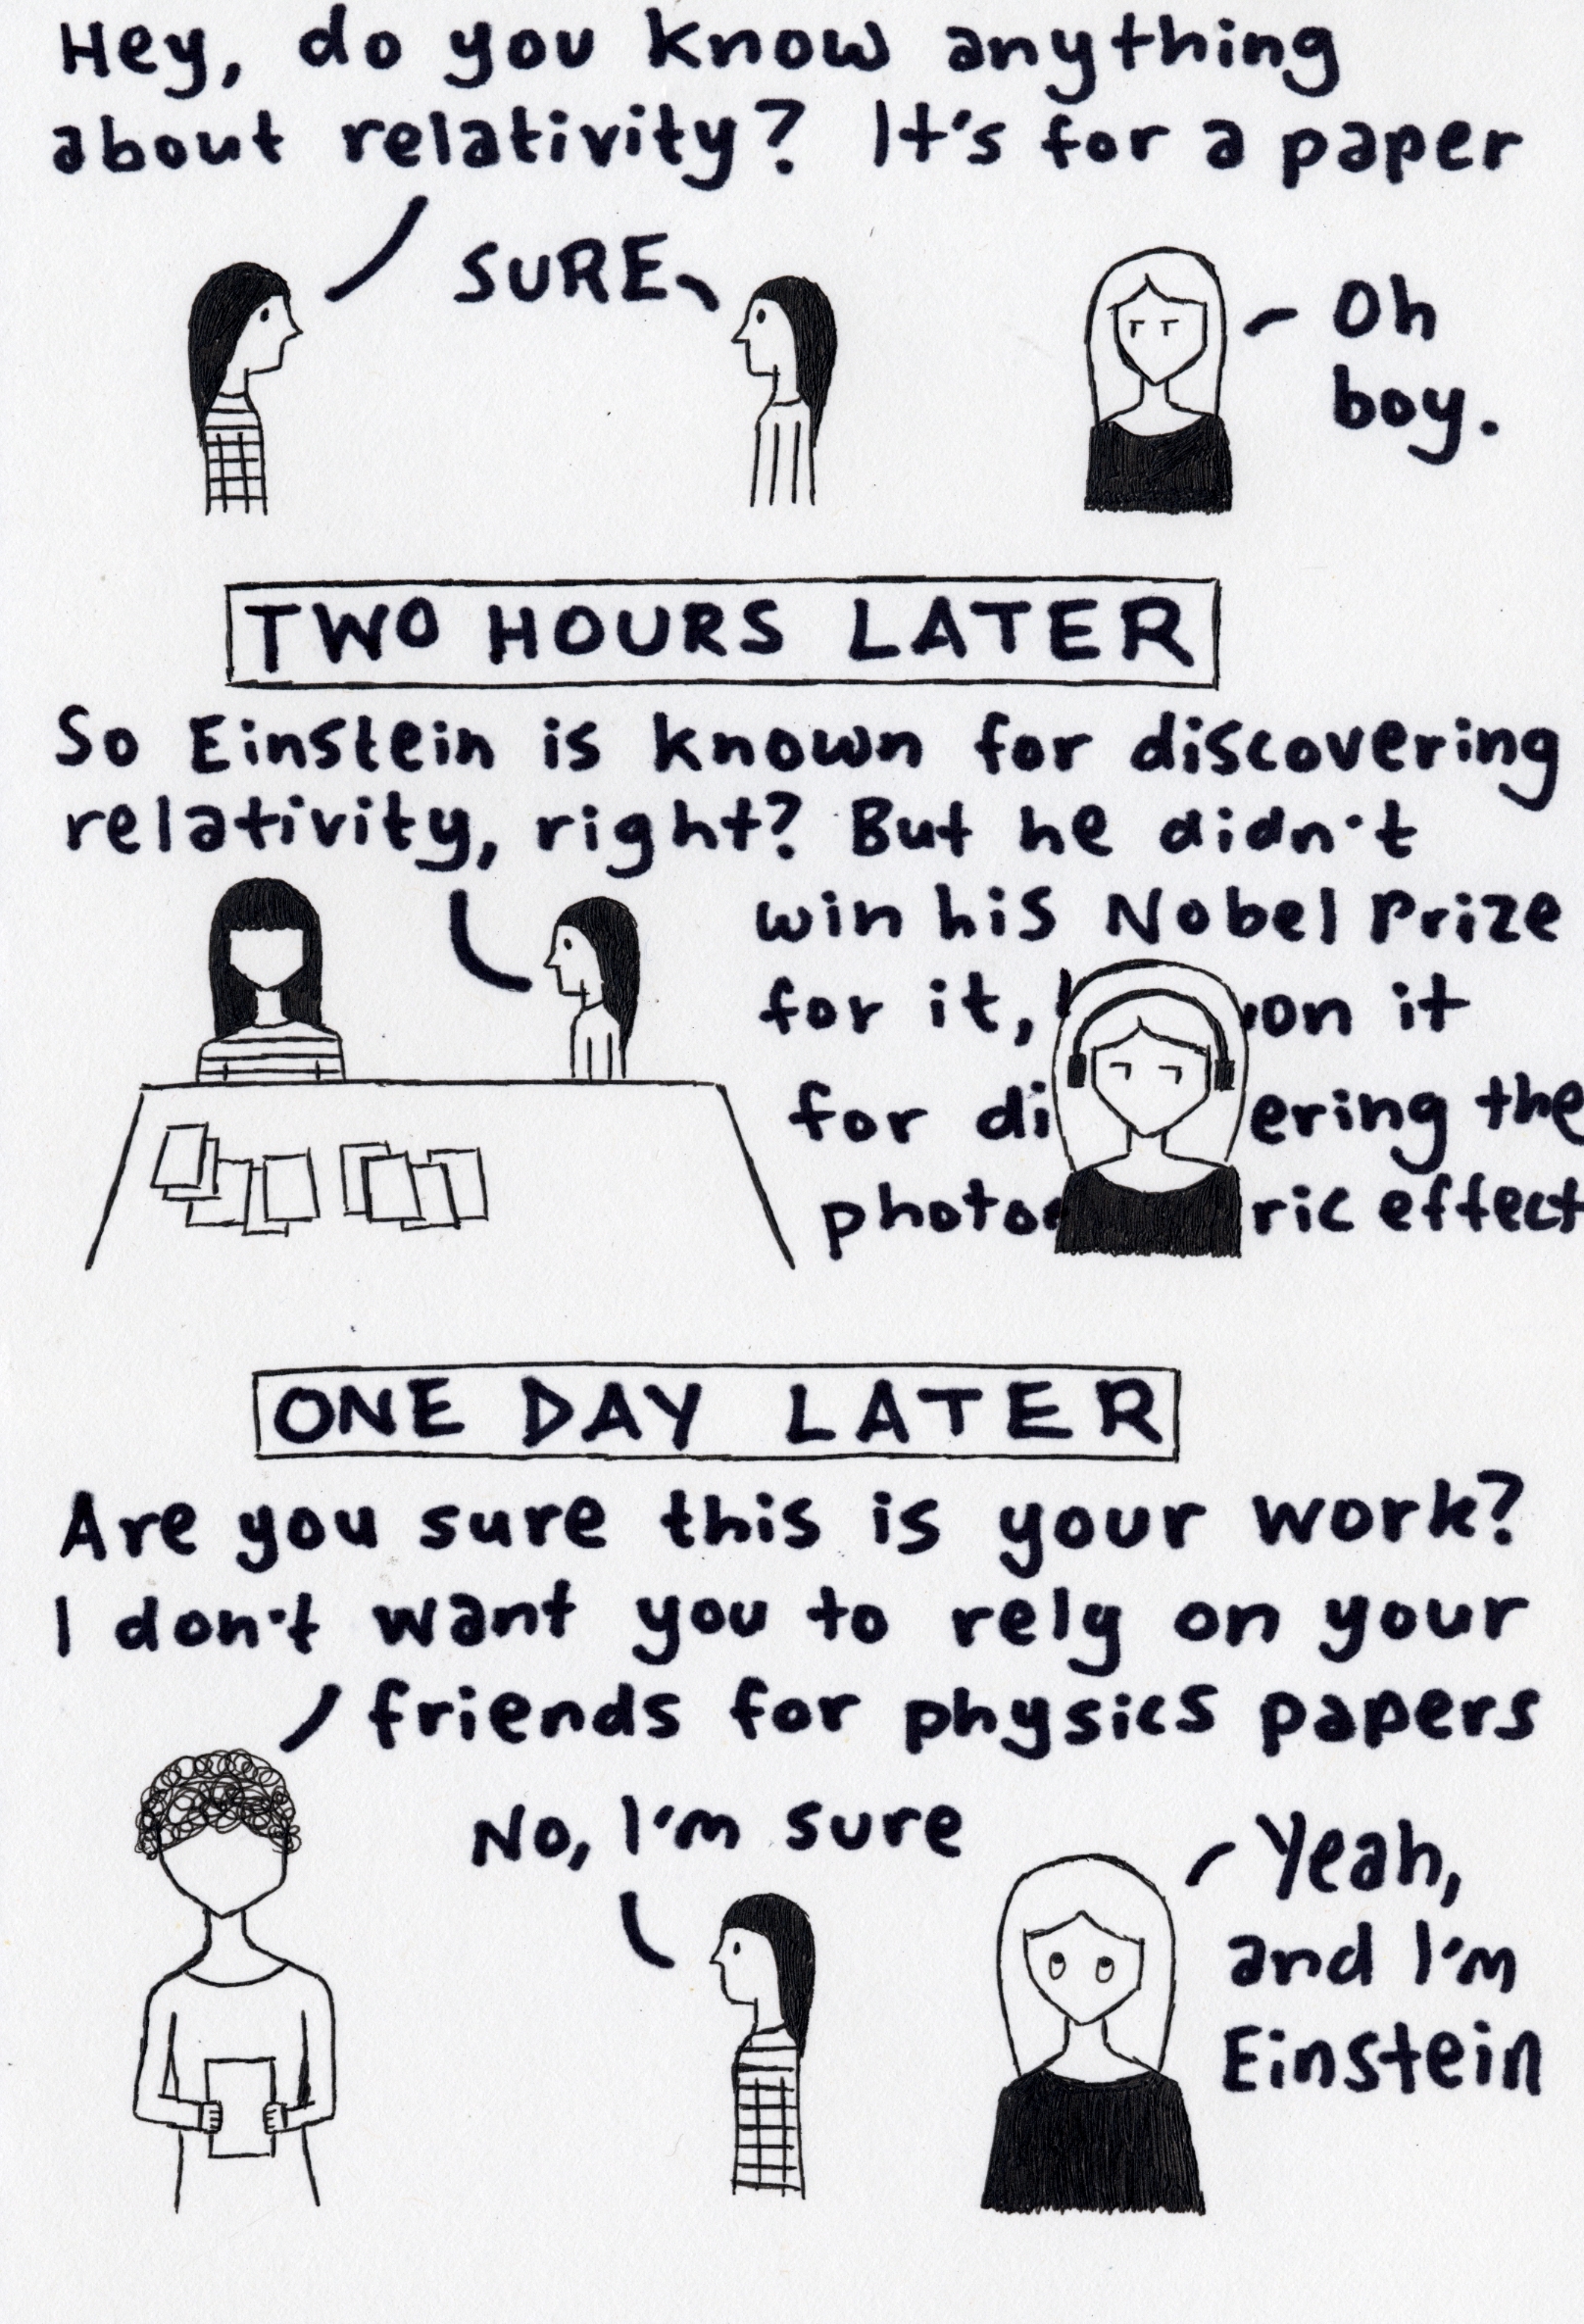 Hey, do you know anything
about relativity? It's for a paper
SURE
Oh
boy.
TWO HOURS LATER
So Einstein is known for discovering
relativity, right? But he didn't
win his Nobel Prize
for it, on it
for di ering the
photo ric effect
ONE DAY LATER
Are you sure this is your work?
I don't want you to rely on your
friends for physics papers
No, I'm sure
Yeah,
and I'm
Einstein